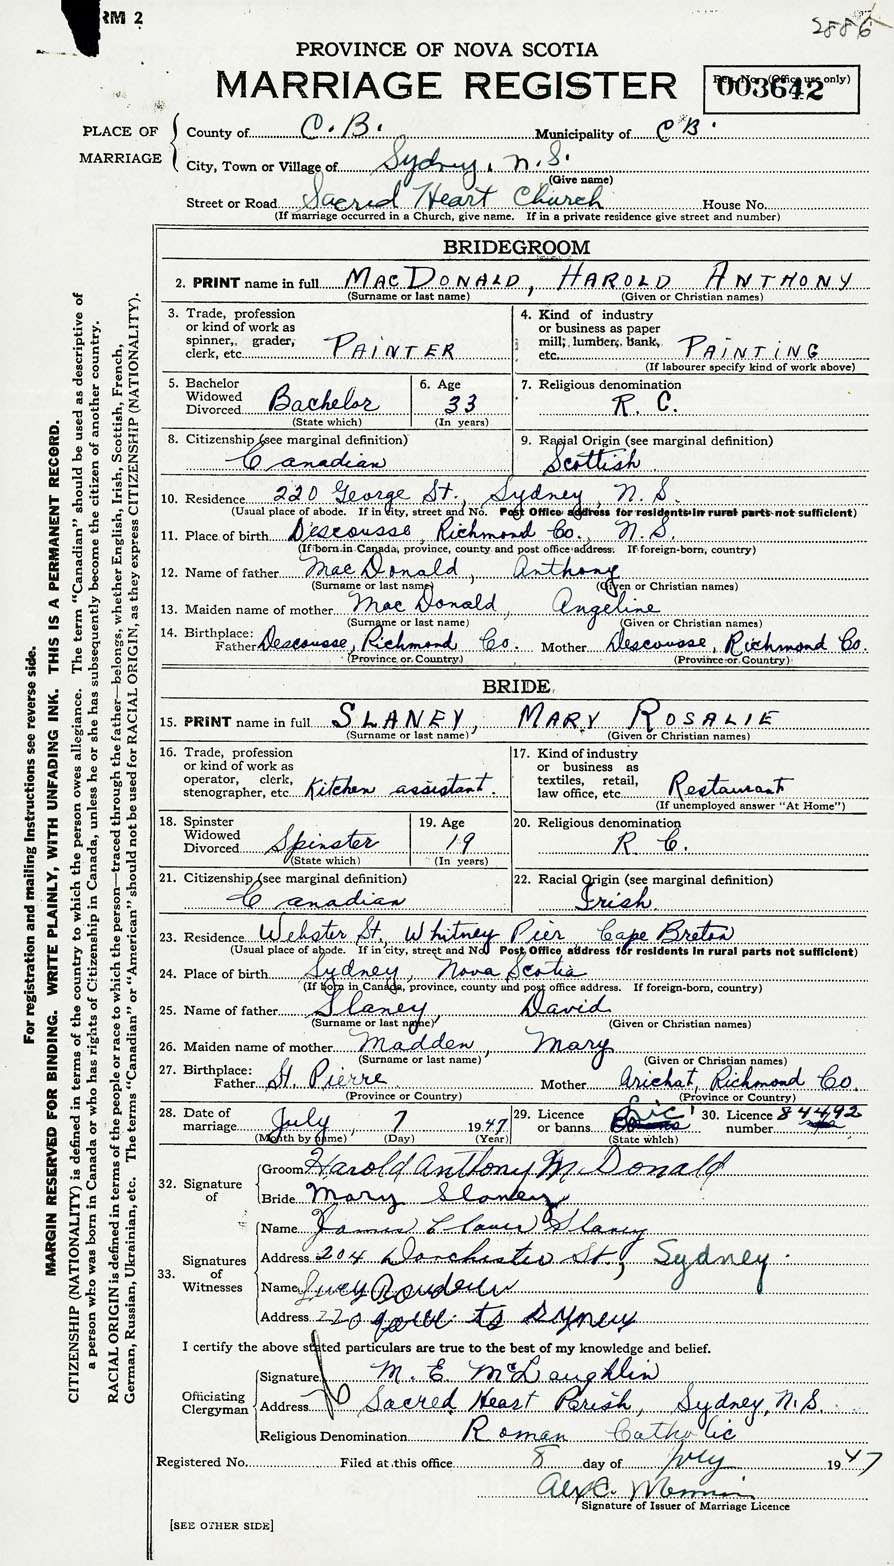 RM 2
2886
PROVINCE OF NOVA SCOTIA
MARRIAGE REGISTER
Reg. No. (Office use only)
003642
PLACE OF MARRIAGE
County of C. B. Municipality of C B.
City, Town or Village of Sydney, N. S.
(Give name)
Street or Road Sacred Heart Church House No.
(If marriage occurred in a Church, give name. If in a private residence give street and number)
BRIDEGROOM
2. PRINT name in full MACDONALD, HAROLD ANTHONY
(Surname or last name) (Given or Christian names)
3. Trade, profession or kind of work as spinner, grader, clerk, etc. PAINTER
4. Kind of industry or business as paper mill, lumber, bank, etc. PAINTING
(If labourer specify kind of work above)
5. Bachelor Widowed Divorced Bachelor
(State which)
6. Age 33
(In years)
7. Religious denomination R. C.
8. Citizenship (see marginal definition) Canadian
9. Racial Origin (see marginal definition) Scottish
10. Residence 220 George St., Sydney, N. S.
(Usual place of abode. If in city, street and No. Post Office address for residents in rural parts not sufficient)
11. Place of birth Descousse, Richmond Co., N. S.
(If born in Canada, province, county and post office address. If foreign-born, country)
12. Name of father MacDonald, Anthony
(Surname or last name) (Given or Christian names)
13. Maiden name of mother MacDonald, Angeline
(Surname or last name) (Given or Christian names)
14. Birthplace: Father Descousse, Richmond Co. Mother Descousse, Richmond Co.
(Province or Country) (Province or Country)
BRIDE
15. PRINT name in full SLANEY, MARY ROSALIE
(Surname or last name) (Given or Christian names)
16. Trade, profession or kind of work as operator, clerk, stenographer, etc. Kitchen assistant.
17. Kind of industry or business as textiles, retail, law office, etc. Restaurant
(If unemployed answer "At Home")
18. Spinster Widowed Divorced Spinster
(State which)
19. Age 19
(In years)
20. Religious denomination R. C.
21. Citizenship (see marginal definition) Canadian
22. Racial Origin (see marginal definition) Irish
23. Residence Webster St. Whitney Pier Cape Breton
(Usual place of abode. If in city, street and No. Post Office address for residents in rural parts not sufficient)
24. Place of birth Sydney, Nova Scotia
(If born in Canada, province, county and post office address. If foreign-born, country)
25. Name of father Slaney, David
(Surname or last name) (Given or Christian names)
26. Maiden name of mother Madden, Mary
(Surname or last name) (Given or Christian names)
27. Birthplace: Father St. Pierre Mother Arichat, Richmond Co.
(Province or Country) (Province or Country)
28. Date of marriage July, 7 1947
(Month by name) (Day) (Year)
29. Licence or banns Lic.
(State which)
30. Licence number 84492
32. Signature of
Groom Harold Anthony McDonald
Bride Mary Slaney
33. Signatures of Witnesses
Name James Slaney
Address 204 Dorchester St., Sydney.
Name Lucy
Address 220 Sydney
I certify the above stated particulars are true to the best of my knowledge and belief.
Officiating Clergyman
Signature M. E. McLaughlin
Address Sacred Heart Parish, Sydney, N. S.
Religious Denomination Roman Catholic
Registered No. Filed at this office 8 day of July 1947
Signature of Issuer of Marriage Licence
[SEE OTHER SIDE]
For registration and mailing instructions see reverse side.
MARGIN RESERVED FOR BINDING. WRITE PLAINLY, WITH UNFADING INK. THIS IS A PERMANENT RECORD.
CITIZENSHIP (NATIONALITY) is defined in terms of the country to which the person owes allegiance. The term "Canadian" should be used as descriptive of
a person who was born in Canada or who has rights of Citizenship in Canada, unless he or she has subsequently become the citizen of another country.
RACIAL ORIGIN is defined in terms of the people or race to which the person—traced through the father—belongs, whether English, Irish, Scottish, French,
German, Russian, Ukrainian, etc. The terms "Canadian" or "American" should not be used for RACIAL ORIGIN, as they express CITIZENSHIP (NATIONALITY).